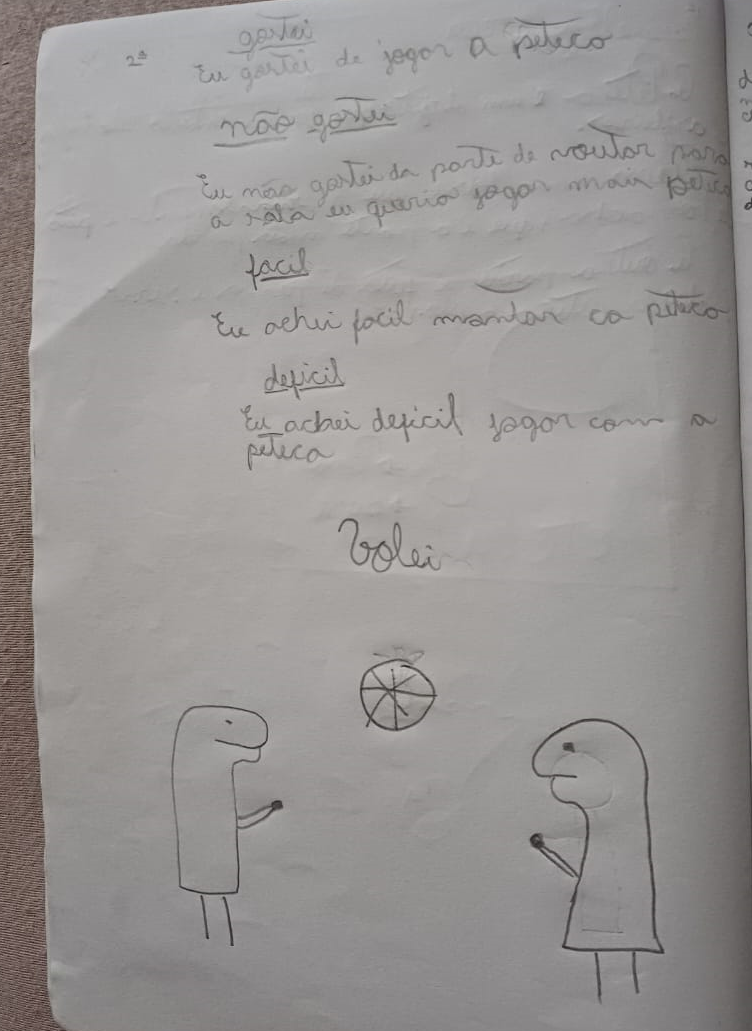 gostei
2ª Eu gostei de jogar a peteca
não gostei
Eu não gostei da parte de voutar para
a sala eu queria jogar mais peteca
facil
Eu achei facil montar a peteca
deficil
Eu achei deficil jogar com a
peteca
Volei